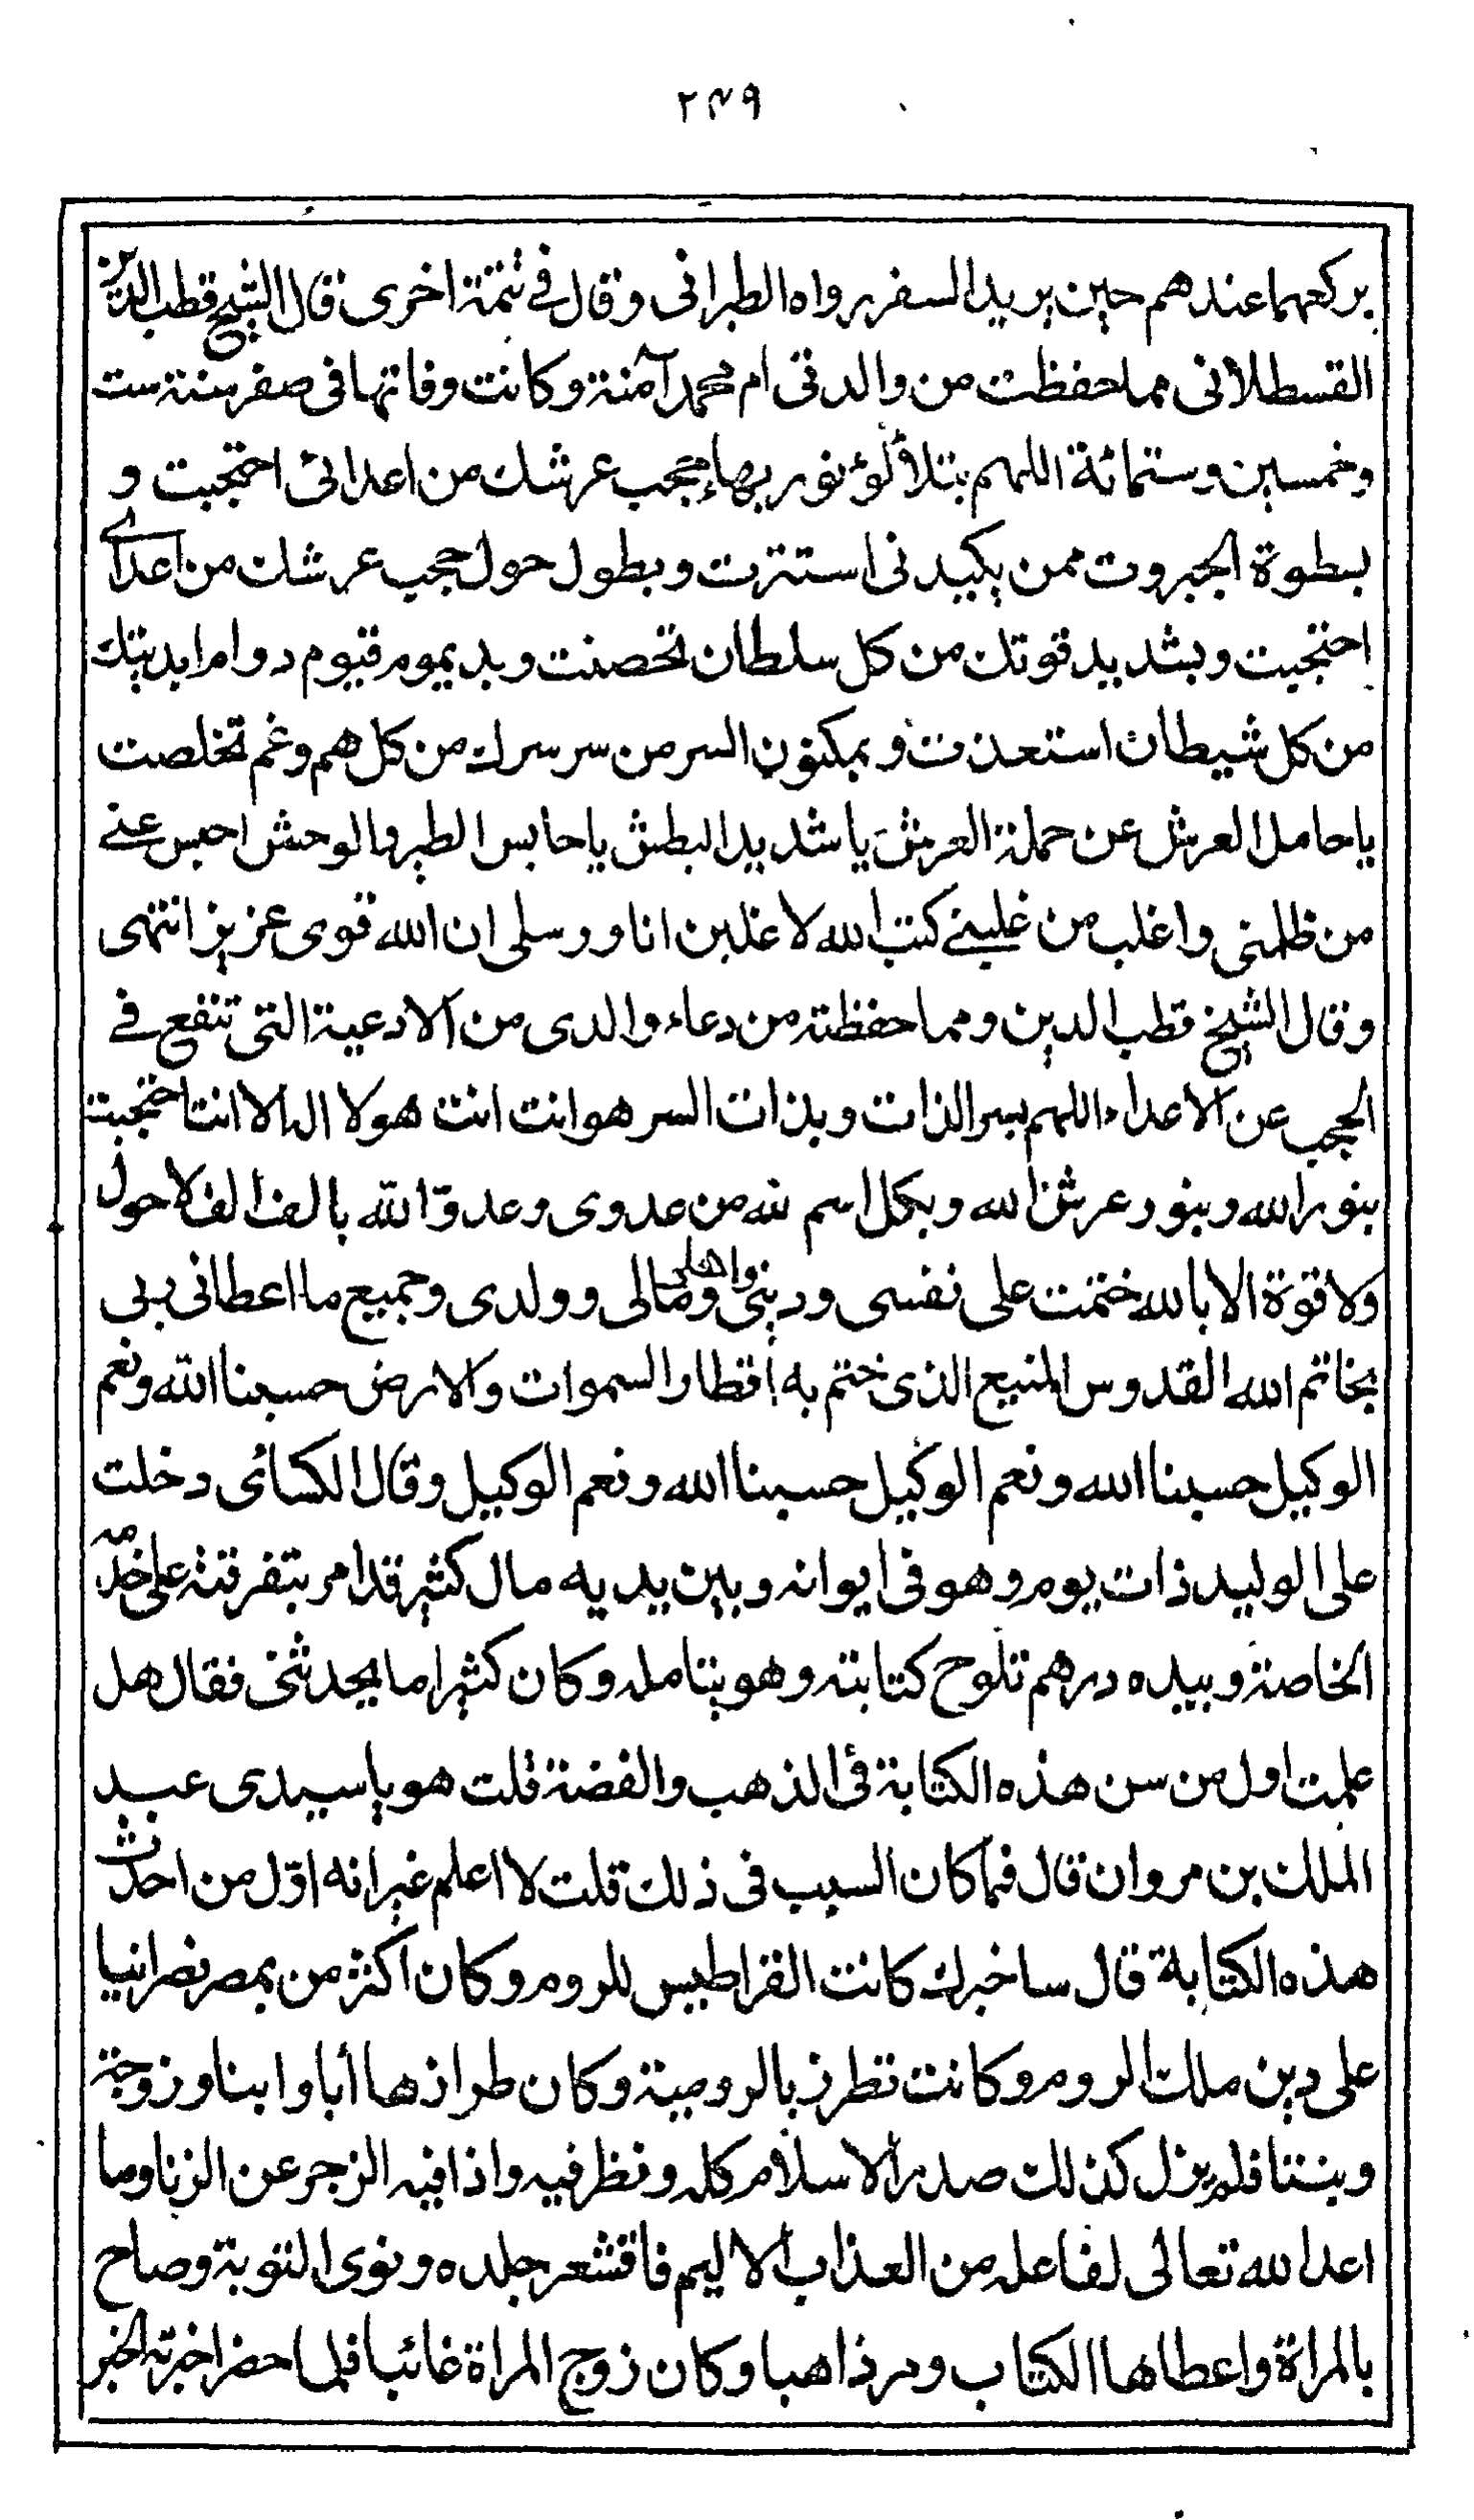 ٢٣٩
يركعهما عندهم حين يريد السفر رواه الطبرانى وقال فى تتمة اخرى قال الشيخ قطب الدين
القسطلانى مما حفظت من والدتى ام محمد آمنة وكانت وفاتها فى صفر سنة ست
وخمسين وستمائة اللهم بتلألؤ نور بهاء حجب عرشك من اعدائى احتجبت و
بسطوة الجبروت ممن يكيدنى استترت وبطول حول حجب عرشك من اعداى
احتجبت وبشديد قوتك من كل سلطان تحصنت وبديموم قيوم دوام ابديتك
من كل شيطان استعذت وبمكنون السر من سر سرك من كل هم وغم تخلصت
يا حامل العرش عن حملة العرش يا شديد البطش يا حابس الطير والوحش احبس عنى
من ظلمنى واغلب من غلبنى كتب الله لاغلبن انا ورسلى ان الله قوى عزيز انتهى
وقال الشيخ قطب الدين ومما حفظته من دعاء والدى من الادعية التى تنفع فى
الحجب عن الاعداء اللهم بسر الذات وبذات السر هو انت انت هو لا اله الا انت احتجبت
بنور الله وبنور عرش الله وبكل اسم لله من عدوى وعدو الله بالف الف لا حول
ولا قوة الا بالله ختمت على نفسى ودينى واهلى ومالى وولدى وجميع ما اعطانى ربى
بخاتم الله القدوس المنيع الذى ختم به اقطار السموات والارض حسبنا الله ونعم
الوكيل حسبنا الله ونعم الوكيل حسبنا الله ونعم الوكيل وقال الكسائى دخلت
على الوليد ذات يوم وهو فى ايوانه وبين يديه مال كثير قد امر بتفرقته على خدمه
الخاصة وبيده درهم تلوح كتابته وهو يتامله وكان كثيرا ما يحدثنى فقال هل
علمت اول من سن هذه الكتابة فى الذهب والفضة قلت هو يا سيدى عبد
الملك بن مروان قال فما كان السبب فى ذلك قلت لا اعلم غير انه اوّل من احدث
هذه الكتابة قال ساخبرك كانت القراطيس للروم وكان اكثر من بمصر نصرانيا
على دين ملك الروم وكانت تطرز بالرومية وكان طرازها أبا وابنا وزوجة
وبنتا فلم يزل كذلك صدر الاسلام كله ونظر فيه واذا فيه الزجر عن الزنا وما
اعد الله تعالى لفاعله من العذاب الاليم فاقشعر جلده ونوى التوبة وصاح
بالمراة واعطاها الكتاب ومر ذاهبا وكان زوج المراة غائبا فلما حضر اخبرته الخبر